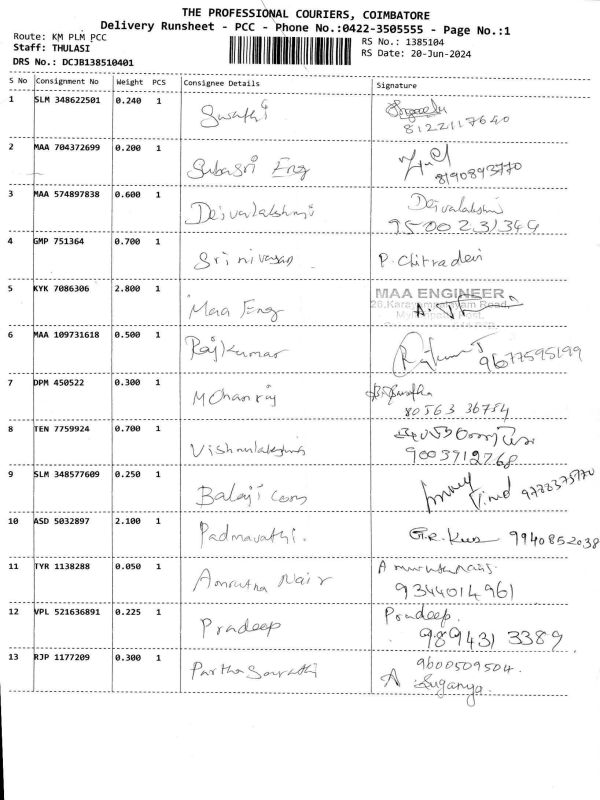 THE PROFESSIONAL COURIERS, COIMBATORE
Delivery Runsheet - PCC - Phone No.:0422-3505555 - Page No.:1
Route: KM PLM PCC
Staff: THULASI
DRS No.: DCJB138510401
RS No.: 1385104
RS Date: 20-Jun-2024
S No Consignment No Weight PCS Consignee Details Signature
1 SLM 348622501 0.240 1 Swathi
8122117640
2 MAA 704372699 0.200 1 Subasri Eng
8190893770
3 MAA 574897838 0.600 1 Deivalakshmi Deivalakshmi
9500231349
4 GMP 751364 0.700 1 Srinivasan P. Chitradevi
5 KYK 7086306 2.800 1 Maa Eng MAA ENGINEER
6 MAA 109731618 0.500 1 Rajkumar Rajkumar J
9677595199
7 DPM 450522 0.300 1 Mohanraj
80563 36754
8 TEN 7759924 0.700 1 Vishnulakshmi
9003912768
9 SLM 348577609 0.250 1 Balaji Cons
10 ASD 5032897 2.100 1 Padmavathi. G.R. 9940852038
11 TYR 1138288 0.050 1 Amrutha Nair Amrutha Nair
9344014961
12 VPL 521636891 0.225 1 Pradeep Pradeep.
989431 3389
13 RJP 1177209 0.300 1 Parthasarathi 9600509504.
A Suganya.